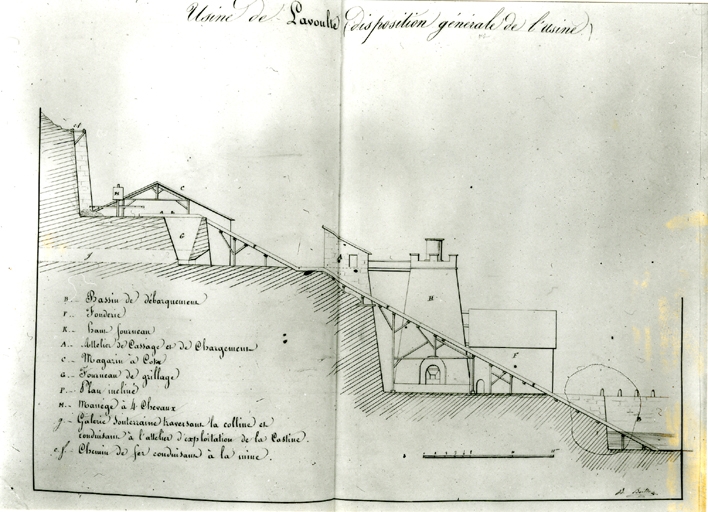 Usine de Lavoulte (disposition générale de l'usine)
B.. Bassin de débarquement
F.. Fonderie
H.. Haut fourneau
A.. Attelier de Cassage et de Chargement
C.. Magazin à Coke
G.. Fourneau de grillage
P.. Plan incliné
M.. Manège à 4 Chevaux
g.. Galerie Souterraine traversant la colline et
conduisant à l'attelier d'exploitation de la Castine.
e.f.. Chemin de fer conduisant à la mine.